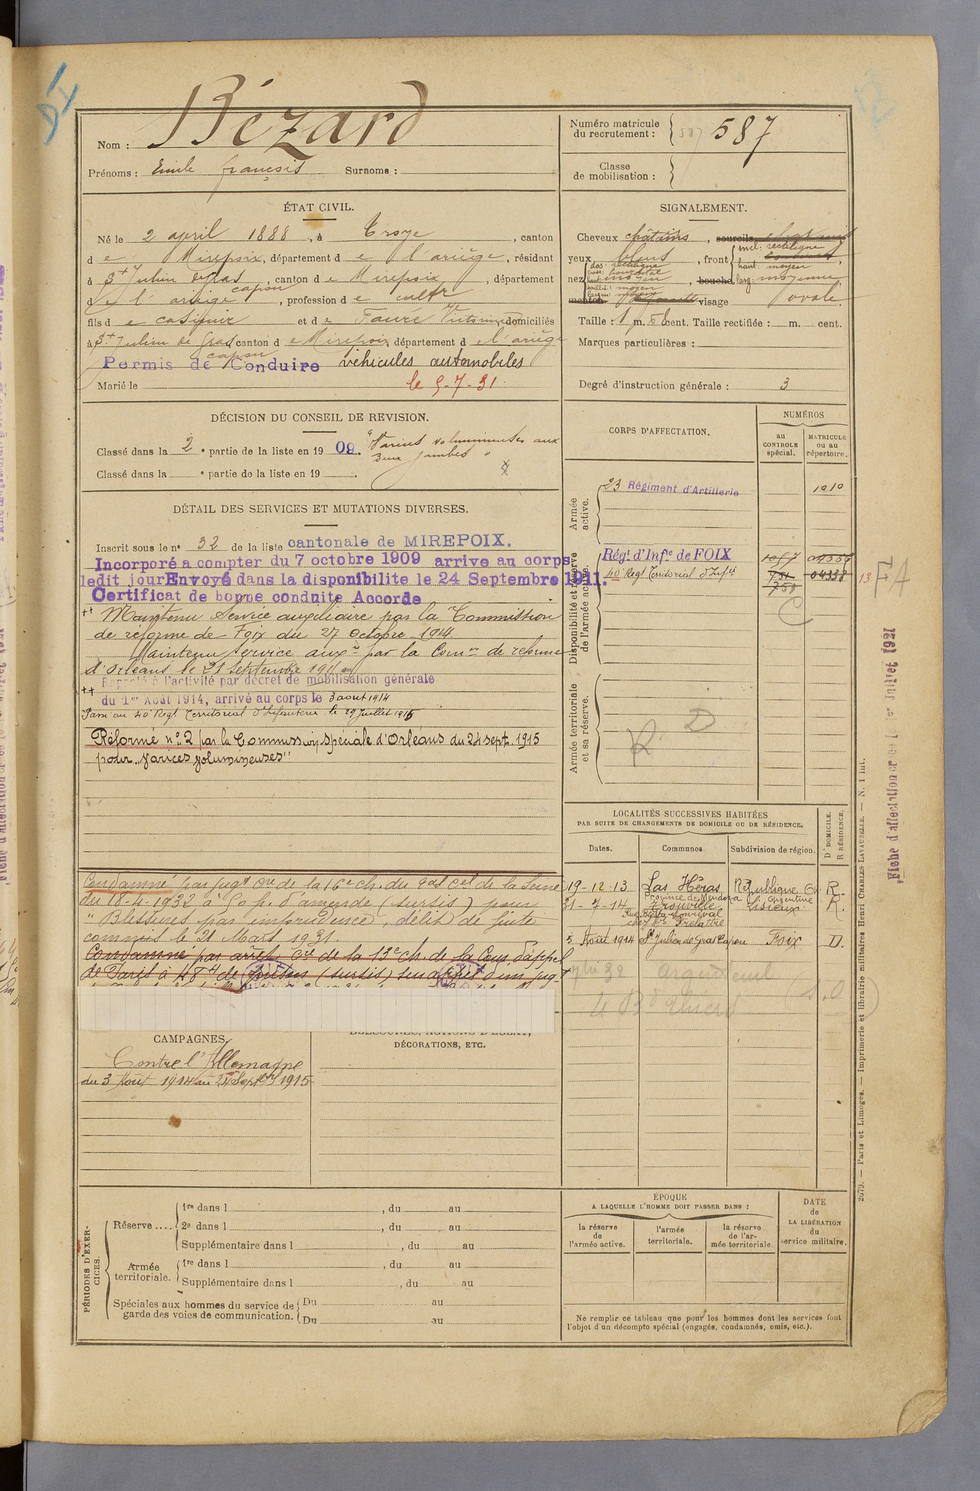 Nom : Bézard
Prénoms : Emile françois Surnoms :
Numéro matricule du recrutement : 587
Classe de mobilisation :
ÉTAT CIVIL.
Né le 2 april 1888, à Troye, canton
d e Mirepoix, département d e l'ariège, résidant
à St Julien de Gras capou, canton d e Mirepoix, département
de l'ariège, profession d e cultr
fils d e casimir et d e Fauré Victorine, domiciliés
à St Julien de Gras capou canton d e Mirepoix département d e l'ariège
Permis de Conduire véhicules automobiles
Marié le
le 5-7-31.
SIGNALEMENT.
Cheveux châtains, sourcils
yeux bleus, front incl. rectiligne
haut. moyen
nez dos: rectiligne
larg: moyenne
menton visage ovale
Taille : 1 m. cent. Taille rectifiée : m. cent.
Marques particulières :
Degré d'instruction générale : 3
DÉCISION DU CONSEIL DE REVISION.
Classé dans la 2e partie de la liste en 1909. "Varices volumineuses aux
deux jambes"
Classé dans la e partie de la liste en 19 .
DÉTAIL DES SERVICES ET MUTATIONS DIVERSES.
Inscrit sous le n° 32 de la liste cantonale de MIREPOIX.
Incorporé a compter du 7 octobre 1909 arrive au corps
ledit jour Envoyé dans la disponibilite le 24 Septembre 1911.
Certificat de bonne conduite Accorde
++ Maintenu Service auxiliaire par la Commission
de reforme de Foix du 27 octobre 1914.
Maintenu Service auxre par la Comon de reforme
d'Orléans le 21 Septembre 191
Rappelé à l'activité par décret de mobilisation générale
++ du 1er Août 1914, arrivé au corps le 3 aout 1914
Passé au 40e Régt Territorial d'Infanterie le 29 Juillet 1915
Réformé n° 2 par la Commission Spéciale d'Orléans du 24 sept. 1915
pour "varices volumineuses"
Condamné par jugt Cre de la 16e ch. du bal Cel de la Seine
du 18-4-1932 à 50 f. d'amende (sursis) pour
"Blessures par imprudence - délit de fuite
commis le 21 Mars 1931.
Condamné par arrêt Cre de la 13e ch. de la Cour d'appel
de Paris à 48 h de prison (sursis)
CORPS D'AFFECTATION.
NUMÉROS
au CONTROLE spécial.
MATRICULE ou au répertoire.
Armée active.
23 Régiment d'Artillerie 1010
Disponibilité et réserve de l'armée active.
Régt d'Infie de FOIX 1057 04356
40e Régt Territorial d'Infie 731 04338
750
C
13 FA
Armée territoriale et sa réserve.
R. D
Fiche d'affectation créée le 1er Juillet 1921
LOCALITÉS SUCCESSIVES HABITÉES
PAR SUITE DE CHANGEMENTS DE DOMICILE OU DE RÉSIDENCE.
Dates. Communes. Subdivision de région. D DOMICILE. R RÉSIDENCE.
19-12-13 Las Héras République R.
Province de Mendoza Argentine
31-7-14 Trouville Lisieux R.
5 Août 1914 St Julien de Gras Capou Foix D.
32 Argenteuil
Bd Thiers
CAMPAGNES.
Contre l'Allemagne
du 3 Août 1914 au 24 Septbre 1915
DÉCORATIONS, ETC.
PÉRIODES D'EXERCICES.
Réserve .... 1re dans l , du au
2e dans l , du au
Supplémentaire dans l , du au
Armée territoriale. 1re dans l , du au
Supplémentaire dans l , du au
Spéciales aux hommes du service de garde des voies de communication. Du au
Du au
ÉPOQUE
A LAQUELLE L'HOMME DOIT PASSER DANS :
la réserve de l'armée active.
l'armée territoriale.
la réserve de l'armée territoriale.
DATE de LA LIBÉRATION du service militaire.
Ne remplir ce tableau que pour les hommes dont les services font
l'objet d'un décompte spécial (engagés, condamnés, omis, etc.).
2679. — Paris et Limoges. — Imprimerie et librairie militaires Henri CHARLES-LAVAUZELLE. — N. 1 int.